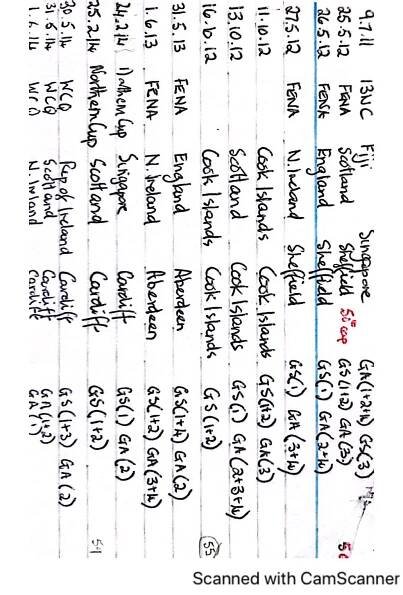 9.7.11 I3NC Fiji Singapore GA(1+2+4) GS(3)
25.5.12 FENA Scotland Sheffield 50th cap GS(1+2) GA(3)
26.5.12 FENA England Sheffield GS(1) GA(2+4)
27.5.12 FENA N.Ireland Sheffield GS(1) GA(3+4)
11.10.12 Cook Islands Cook Islands GS(1+2) GA(3)
13.10.12 Scotland Cook Islands GS(1) GA(2+3+4)
16.10.12 Cook Islands Cook Islands GS(1+2) 55
31.5.13 FENA England Aberdeen GS(1+4) GA(2)
1.6.13 FENA N.Ireland Aberdeen GS(1+2) GA(3+4)
24.2.14 Northern Cup Singapore Cardiff GS(1) GA(2)
25.2.14 Northern Cup Scotland Cardiff GS(1+2)
30.5.14 WCQ Rep of Ireland Cardiff GS(1+3) GA(2)
31.5.14 WCQ Scotland Cardiff GA(1+2)
1.6.14 WCQ N.Ireland Cardiff GA(1)
Scanned with CamScanner